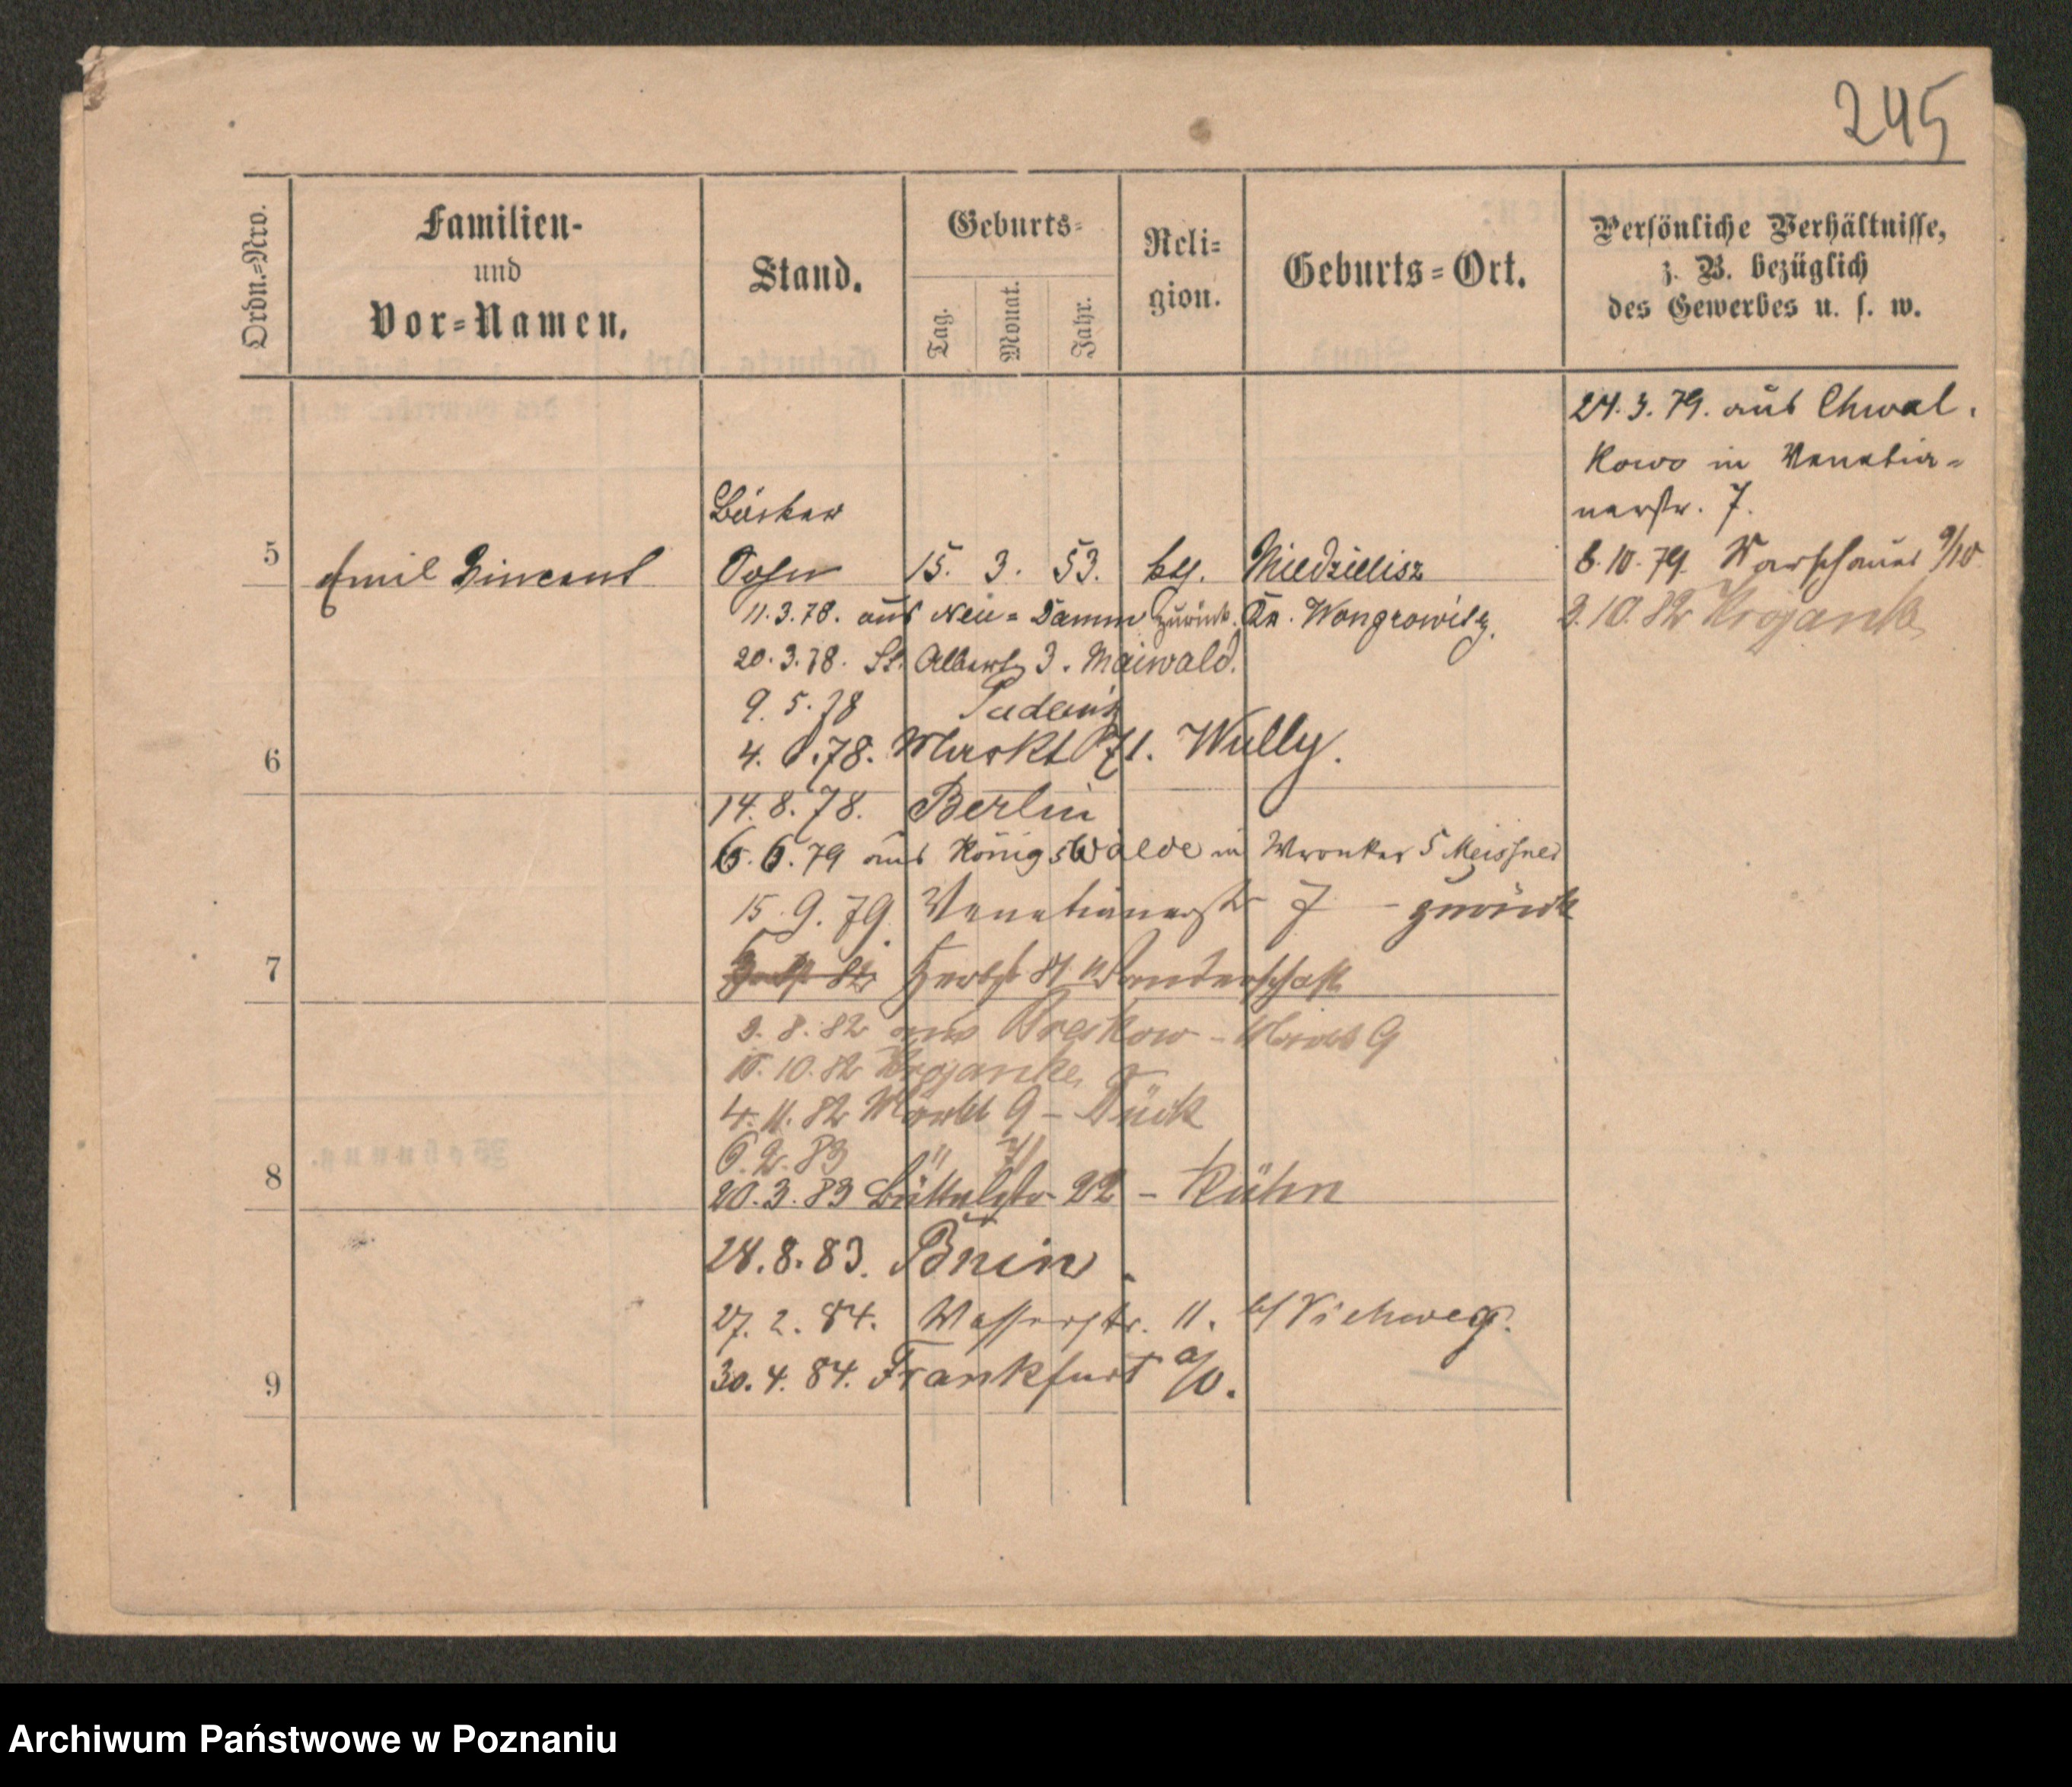 245
Ordn.=Nro.
Familien-
und
Vor=Namen.
Stand.
Geburts=
Tag.
Monat.
Jahr.
Reli=
gion.
Geburts=Ort.
Persönliche Verhältnisse,
z. B. bezüglich
des Gewerbes u. s. w.
24. 3. 79. aus Chwal
kowo in Venetia=
nerstr. 7.
Bäcker
5 Emil Vincent Sohn 15. 3. 53. kth. Niedzielisz
8. 10. 79. Warschauer 9/10
11. 3. 78. aus Neu=Damm zurück. Kr. Wongrowitz.
2. 10. 82 Krojanke
20. 3. 78. St. Albert 3. Maiwald.
9. 5. 78
6
4. 78. Markt 71. Wully.
14. 8. 78. Berlin
6. 79 aus Königswalde in Wronker 5 Meissner
15. 9. 79. Venetianerstr 7 - zurück
7
Herbst 81 Wanderschaft
2. 8. 82 aus - Markt 9
10. 82 Krojanke
4. 11. 82 Markt 9 - Tück
6. 2. 83 "
8
20. 3. 83 Büttelstr 22 - Kühn
28. 8. 83. Bnin.
27. 2. 84. Wasserstr. 11. b/ Viehweg.
30. 4. 84. Frankfurt a/O.
9
Archiwum Państwowe w Poznaniu